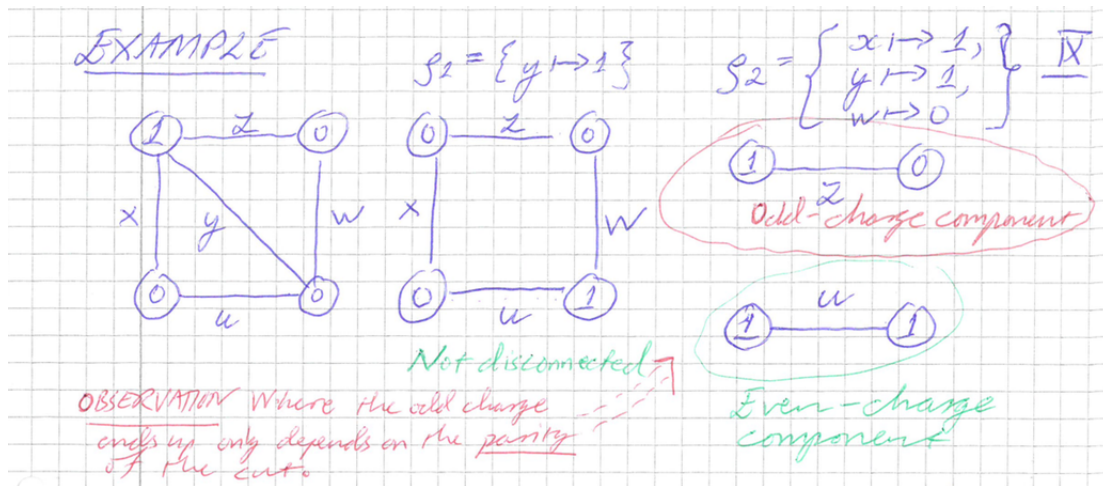 EXAMPLE
ρ1 = {y ↦ 1}
ρ2 = { x ↦ 1,
y ↦ 1,
w ↦ 0 }
IX
1 z 0
x y w
0 u 0
0 z 0
x w
0 u 1
1 z 0
Odd-charge component
u
1 1
Not disconnected
Even-charge
component
OBSERVATION Where the odd charge
ends up only depends on the parity
of the cut.